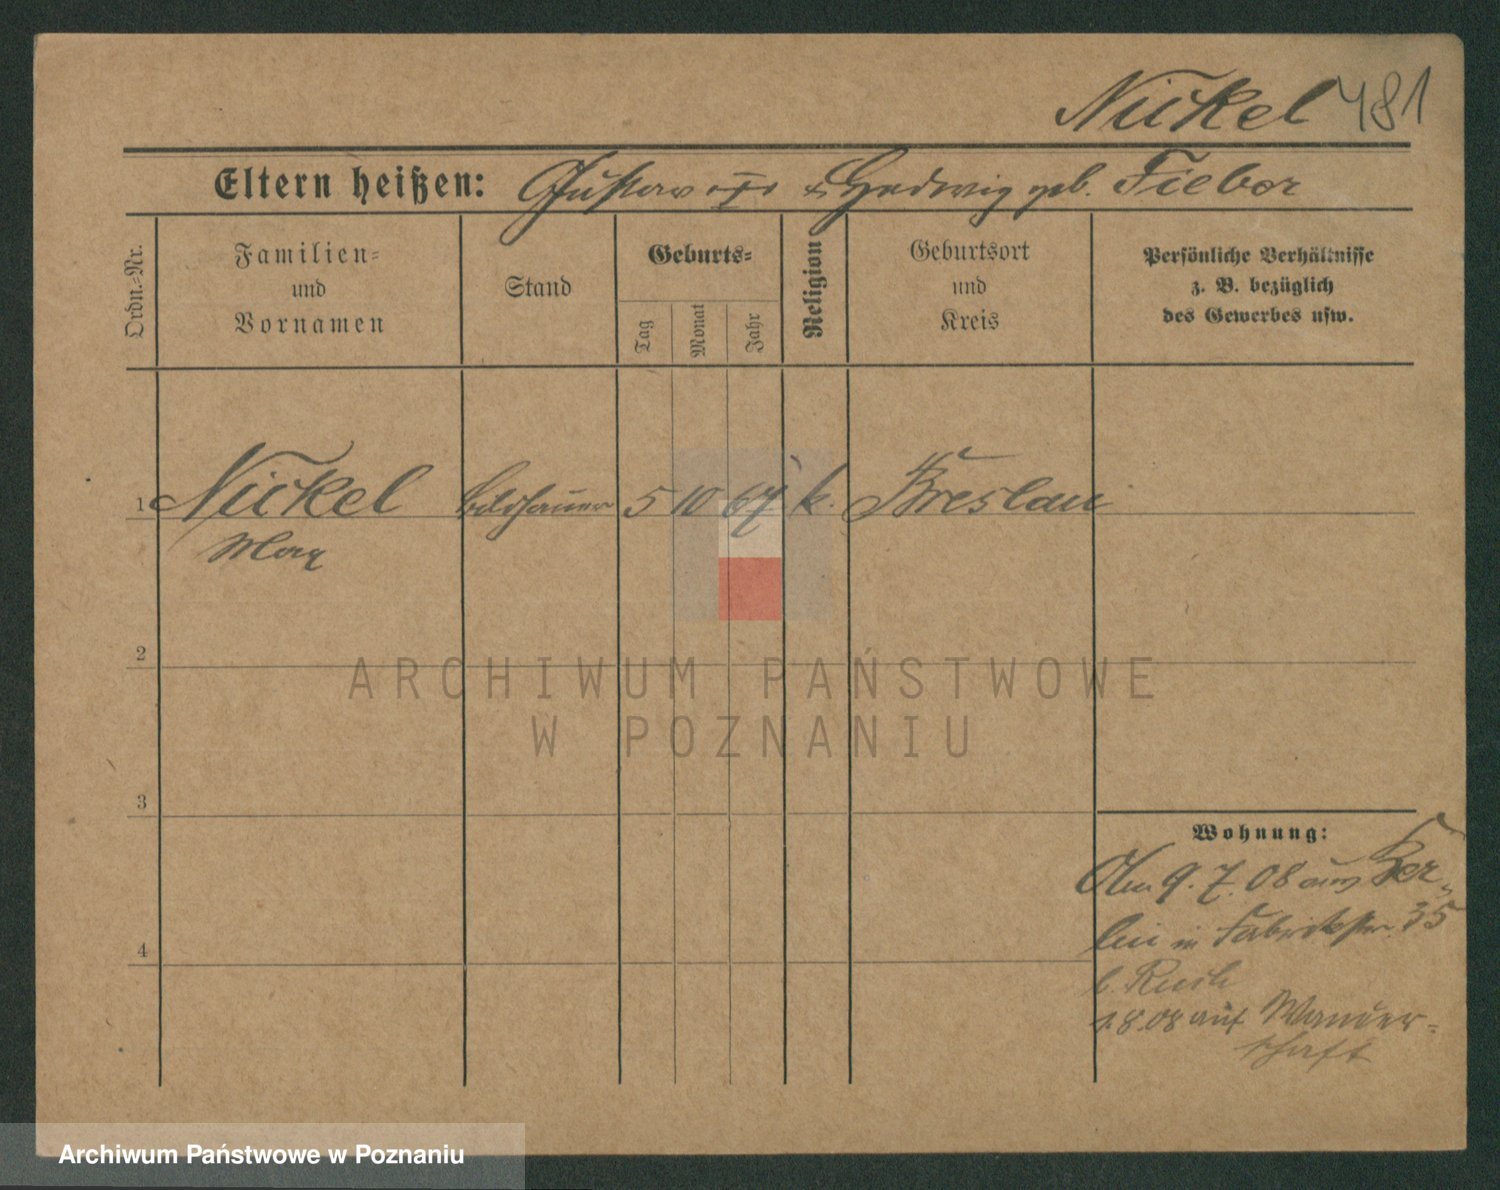 Nickel 481
Eltern heißen: Gustav u. Hedwig geb. Fieber
Ordn.-Nr.
Familien-
und
Vornamen
Stand
Geburts-
Tag
Monat
Jahr
Religion
Geburtsort
und
Kreis
Persönliche Verhältnisse
z. B. bezüglich
des Gewerbes usw.
1 Nickel Bildhauer 5 10 67 k. Breslau
Max
2
ARCHIWUM PAŃSTWOWE
W POZNANIU
3
Wohnung:
Am 9.7.08 aus Ber-
lin in Fabrikstr. 35
b.
1.8.08 auf Wander-
schaft
4
Archiwum Państwowe w Poznaniu